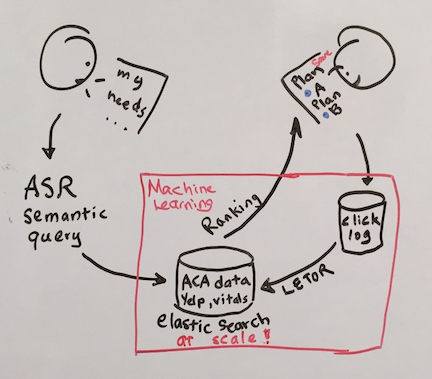 my
needs
...
Plan
Save
A
Plan
B
ASR
semantic
query
Machine
Learning
Ranking
click
log
LETOR
ACA data
Yelp, vitals
elastic search
at scale!